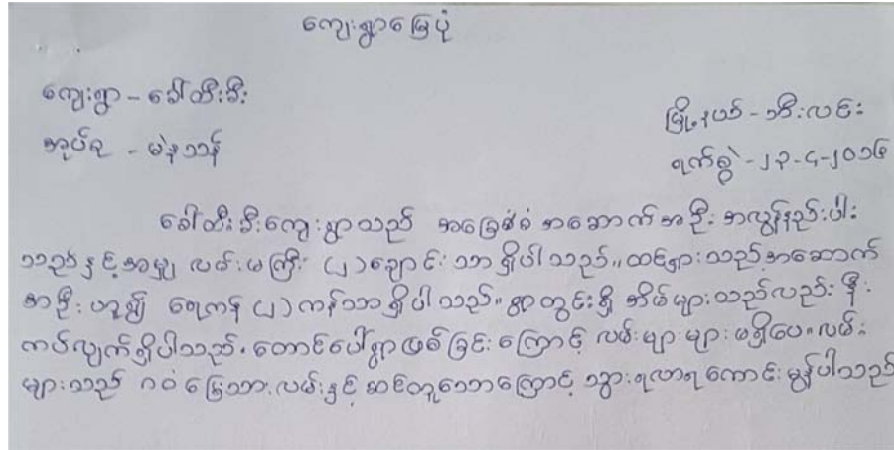 ကျေးရွာမြေပုံ
ကျေးရွာ - ခေါ်ထီးခီး
မြို့နယ် - သီးလင်း
အုပ်စု - မဲနသန်
ရက်စွဲ - ၂၃-၄-၂၀၁၆
ခေါ်ထီးခီးကျေးရွာသည် အခြေခံစံ အဆောက်အဦး အလွန်နည်းပါး
သည်နှင့်အမျှ လမ်းမကြီး (၂) ချောင်းသာ ရှိပါသည်။ ထင်ရှားသည့်အဆောက်
အဦး ဟူ၍ ရေကန် (၂) ကန်သာ ရှိပါသည်။ ရွာတွင်းရှိ အိမ်များသည်လည်း နီး
ကပ်လျက်ရှိပါသည်။ တောင်ပေါ်ရွာဖြစ်ခြင်းကြောင့် လမ်းများ များ မရှိပေ။ လမ်း
များသည် ဂဝံမြေသားလမ်းနှင့် ဆင်တူသောကြောင့် သွားရလာရကောင်းမွန်ပါသည်